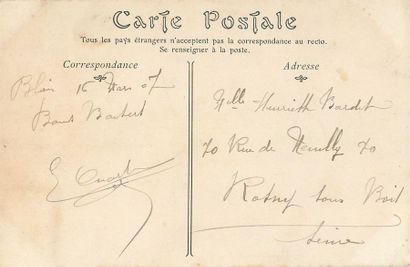 Carte Postale
Tous les pays étrangers n'acceptent pas la correspondance au recto.
Se renseigner à la poste.
Correspondance
Adresse
16 Mars 07
Bons
Melle Henriette Bardet
70 Rue de Neuilly 70
Rosny sous Bois
Seine